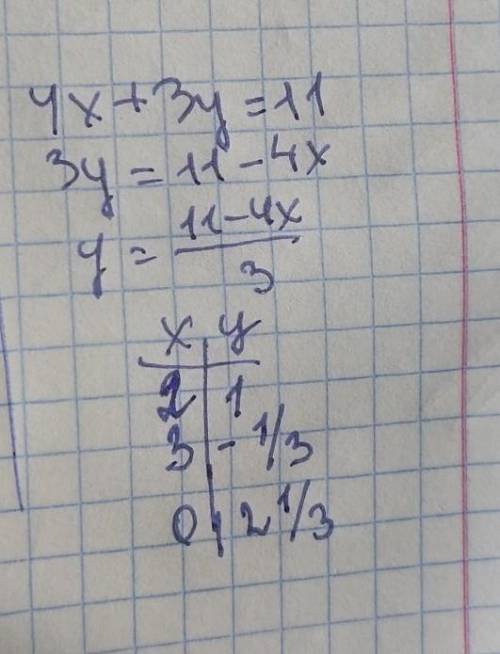 4x+3y=11
3y=11-4x
y=(11-4x)/3
x | y
2 | 1
3 | -1/3
0 | 2 1/3